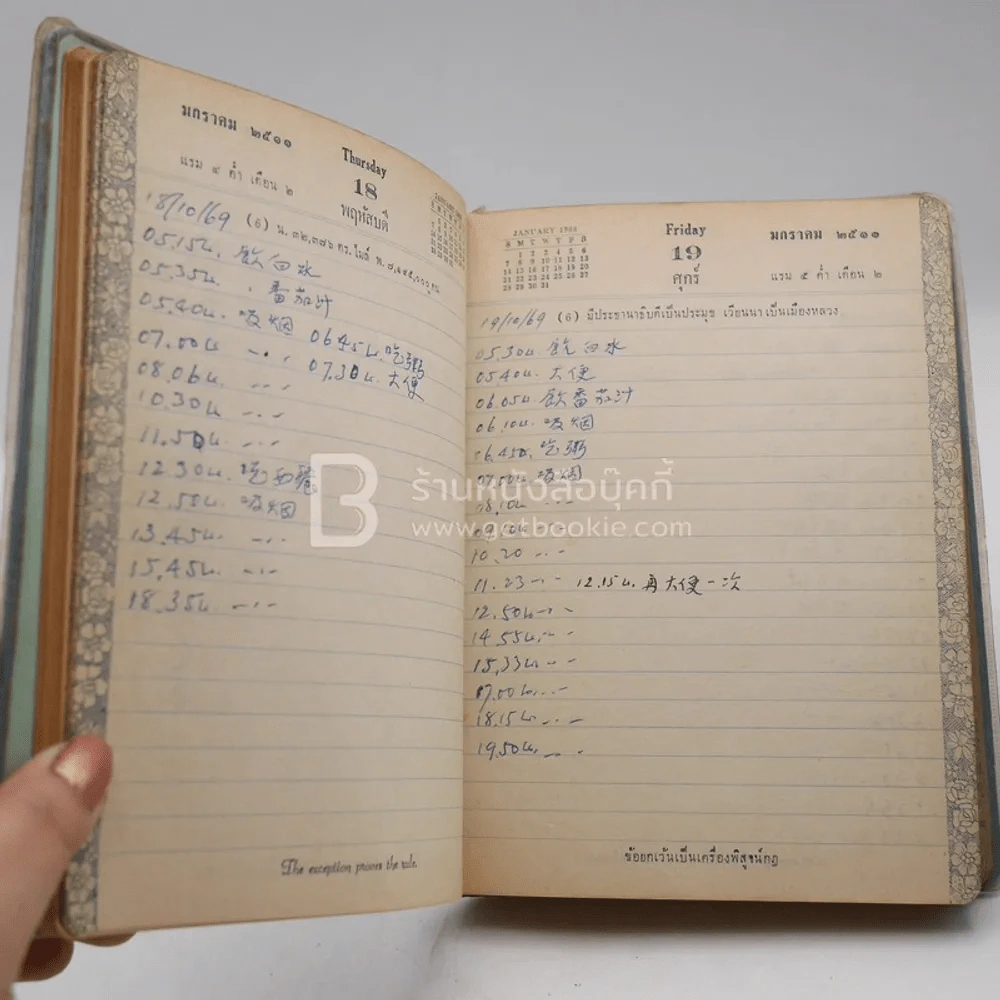 มกราคม ๒๕๑๑
Thursday
18
พฤหัสบดี
แรม ๔ ค่ำ เดือน ๒
18/10/69 (6) น. ๓๒,๓๗๖ ตร.ไมล์ พ.
05.15น. 飲白水
05.35น. 〃 番茄汁
05.40น. 吸烟 06.45น. 吃粥
07.00น. -〃- 07.30น. 大便
08.06น. -〃-
10.30น. -〃-
11.50น. -〃-
12.30น. 吃
12.50น. 吸烟
13.45น. -〃-
15.45น. -〃-
18.35น. -〃-
The exception proves the rule.
JANUARY 1968
S M T W T F S
1 2 3 4 5 6
7 8 9 10 11 12 13
14 15 16 17 18 19 20
21 22 23 24 25 26 27
28 29 30 31
Friday
19
ศุกร์
มกราคม ๒๕๑๑
แรม ๕ ค่ำ เดือน ๒
19/10/69 (6) มีประธานาธิบดีเป็นประมุข เวียนนาเป็นเมืองหลวง
05.30น. 飲白水
05.40น. 大便
06.05น. 飲番茄汁
06.10น. 吸烟
06.45น. 吃粥
07.00น. 吸烟
08.10น. -〃-
09.10น. -〃-
10.20 -〃-
11.23 -〃- 12.15น. 再大便一次
12.50น. -〃-
14.55น. -〃-
15.33น. -〃-
17.00น. -〃-
18.15น. -〃-
19.50น. -〃-
ข้อยกเว้นเป็นเครื่องพิสูจน์กฎ
B ร้านหนังสือบุ๊คกี้
www.gotbookie.com